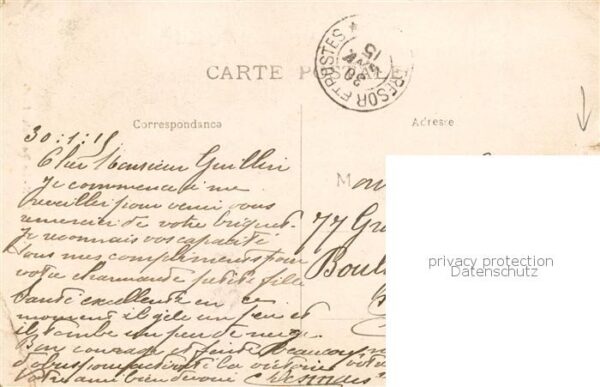 CARTE POSTALE
TRESOR ET POSTES
30
15
Correspondance
Adresse
30.1.15
Cher Monsieur Guillin
Je commence à me
reveiller pour venir vous
remercier de votre briquet.
Je reconnais vos capacité
tous mes compliments pour
votre charmante petite fille
Santé excellente en ce
moment il gèle un peu et
il tombe un peu de neige.
Bon courage et
d'obus pour activité la victoire
Votre ami bien dévoué
Mon
77 Gr
Boul
privacy protection
Datenschutz